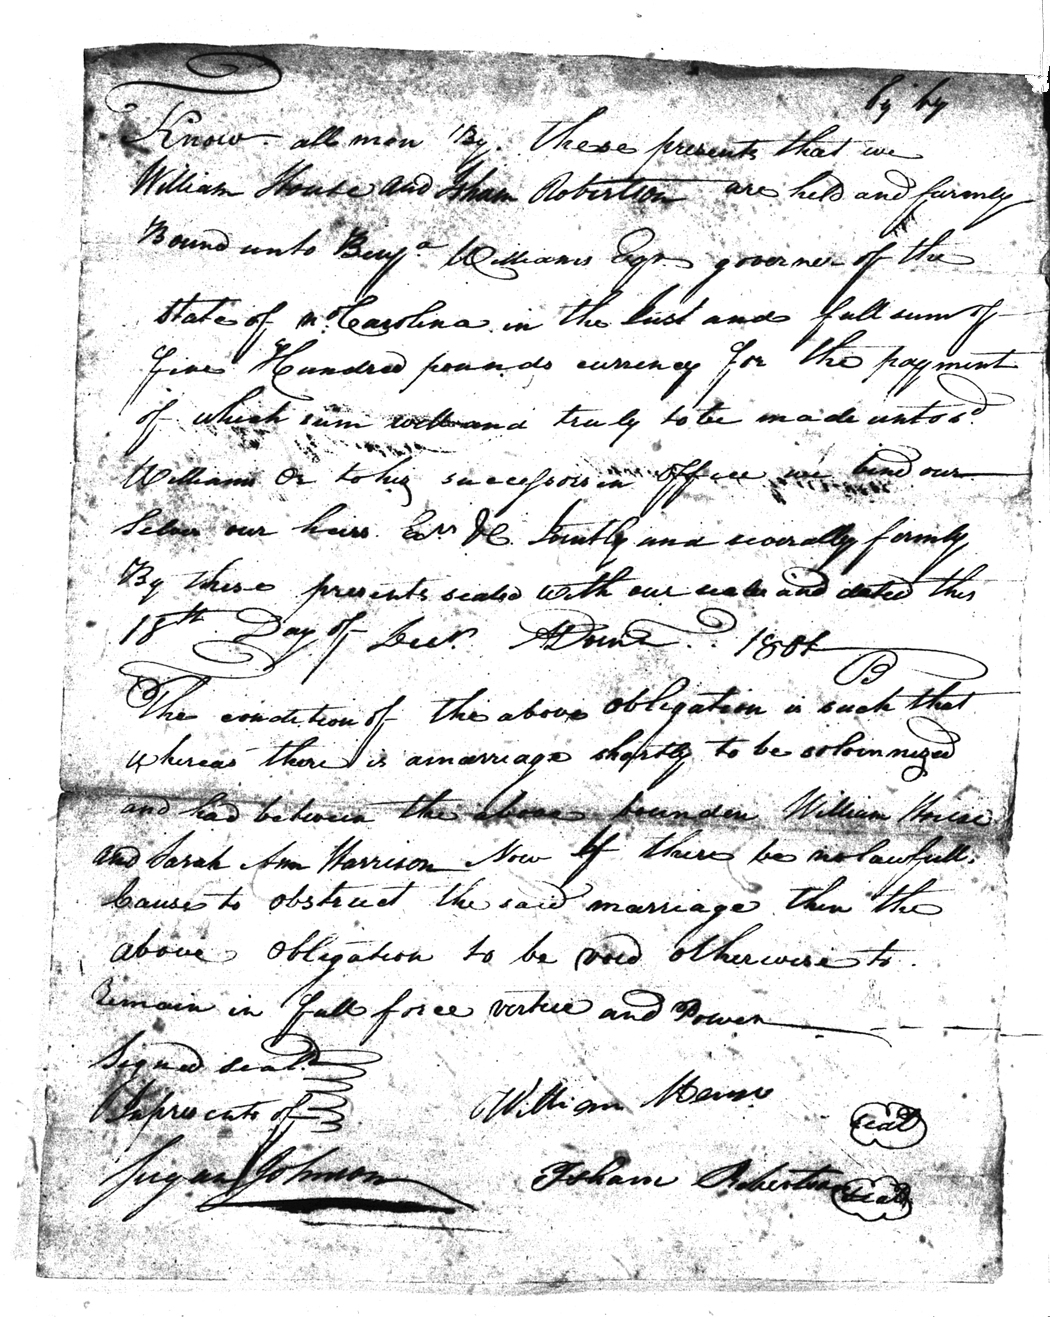 by by
Know all men By these presents that we
William House and Isham Robertson are held and firmly
Bound unto Benja Williams Esqr governer of the
State of no Carolina in the Just and full sum of
five Hundred pounds currency for the payment
of which sum well and truly to be made unto sd
Williams Or to his successors in office we bind our
Selves our heirs Exrs &C Jointly and severally firmly
By these presents sealed with our seals and dated this
18th Day of Decr. ADomi 1801
The condition of the above obligation is such that
whereas there is a marriage shortly to be solemnized
and had between the above bounden William House
and Sarah Ann Harrison Now If there be no lawfull
Cause to obstruct the said marriage then the
above obligation to be void otherwise to
Remain in full force virtue and Power
Signed seald
In presents of
William House seal
Johnson
Isham Robertson seal